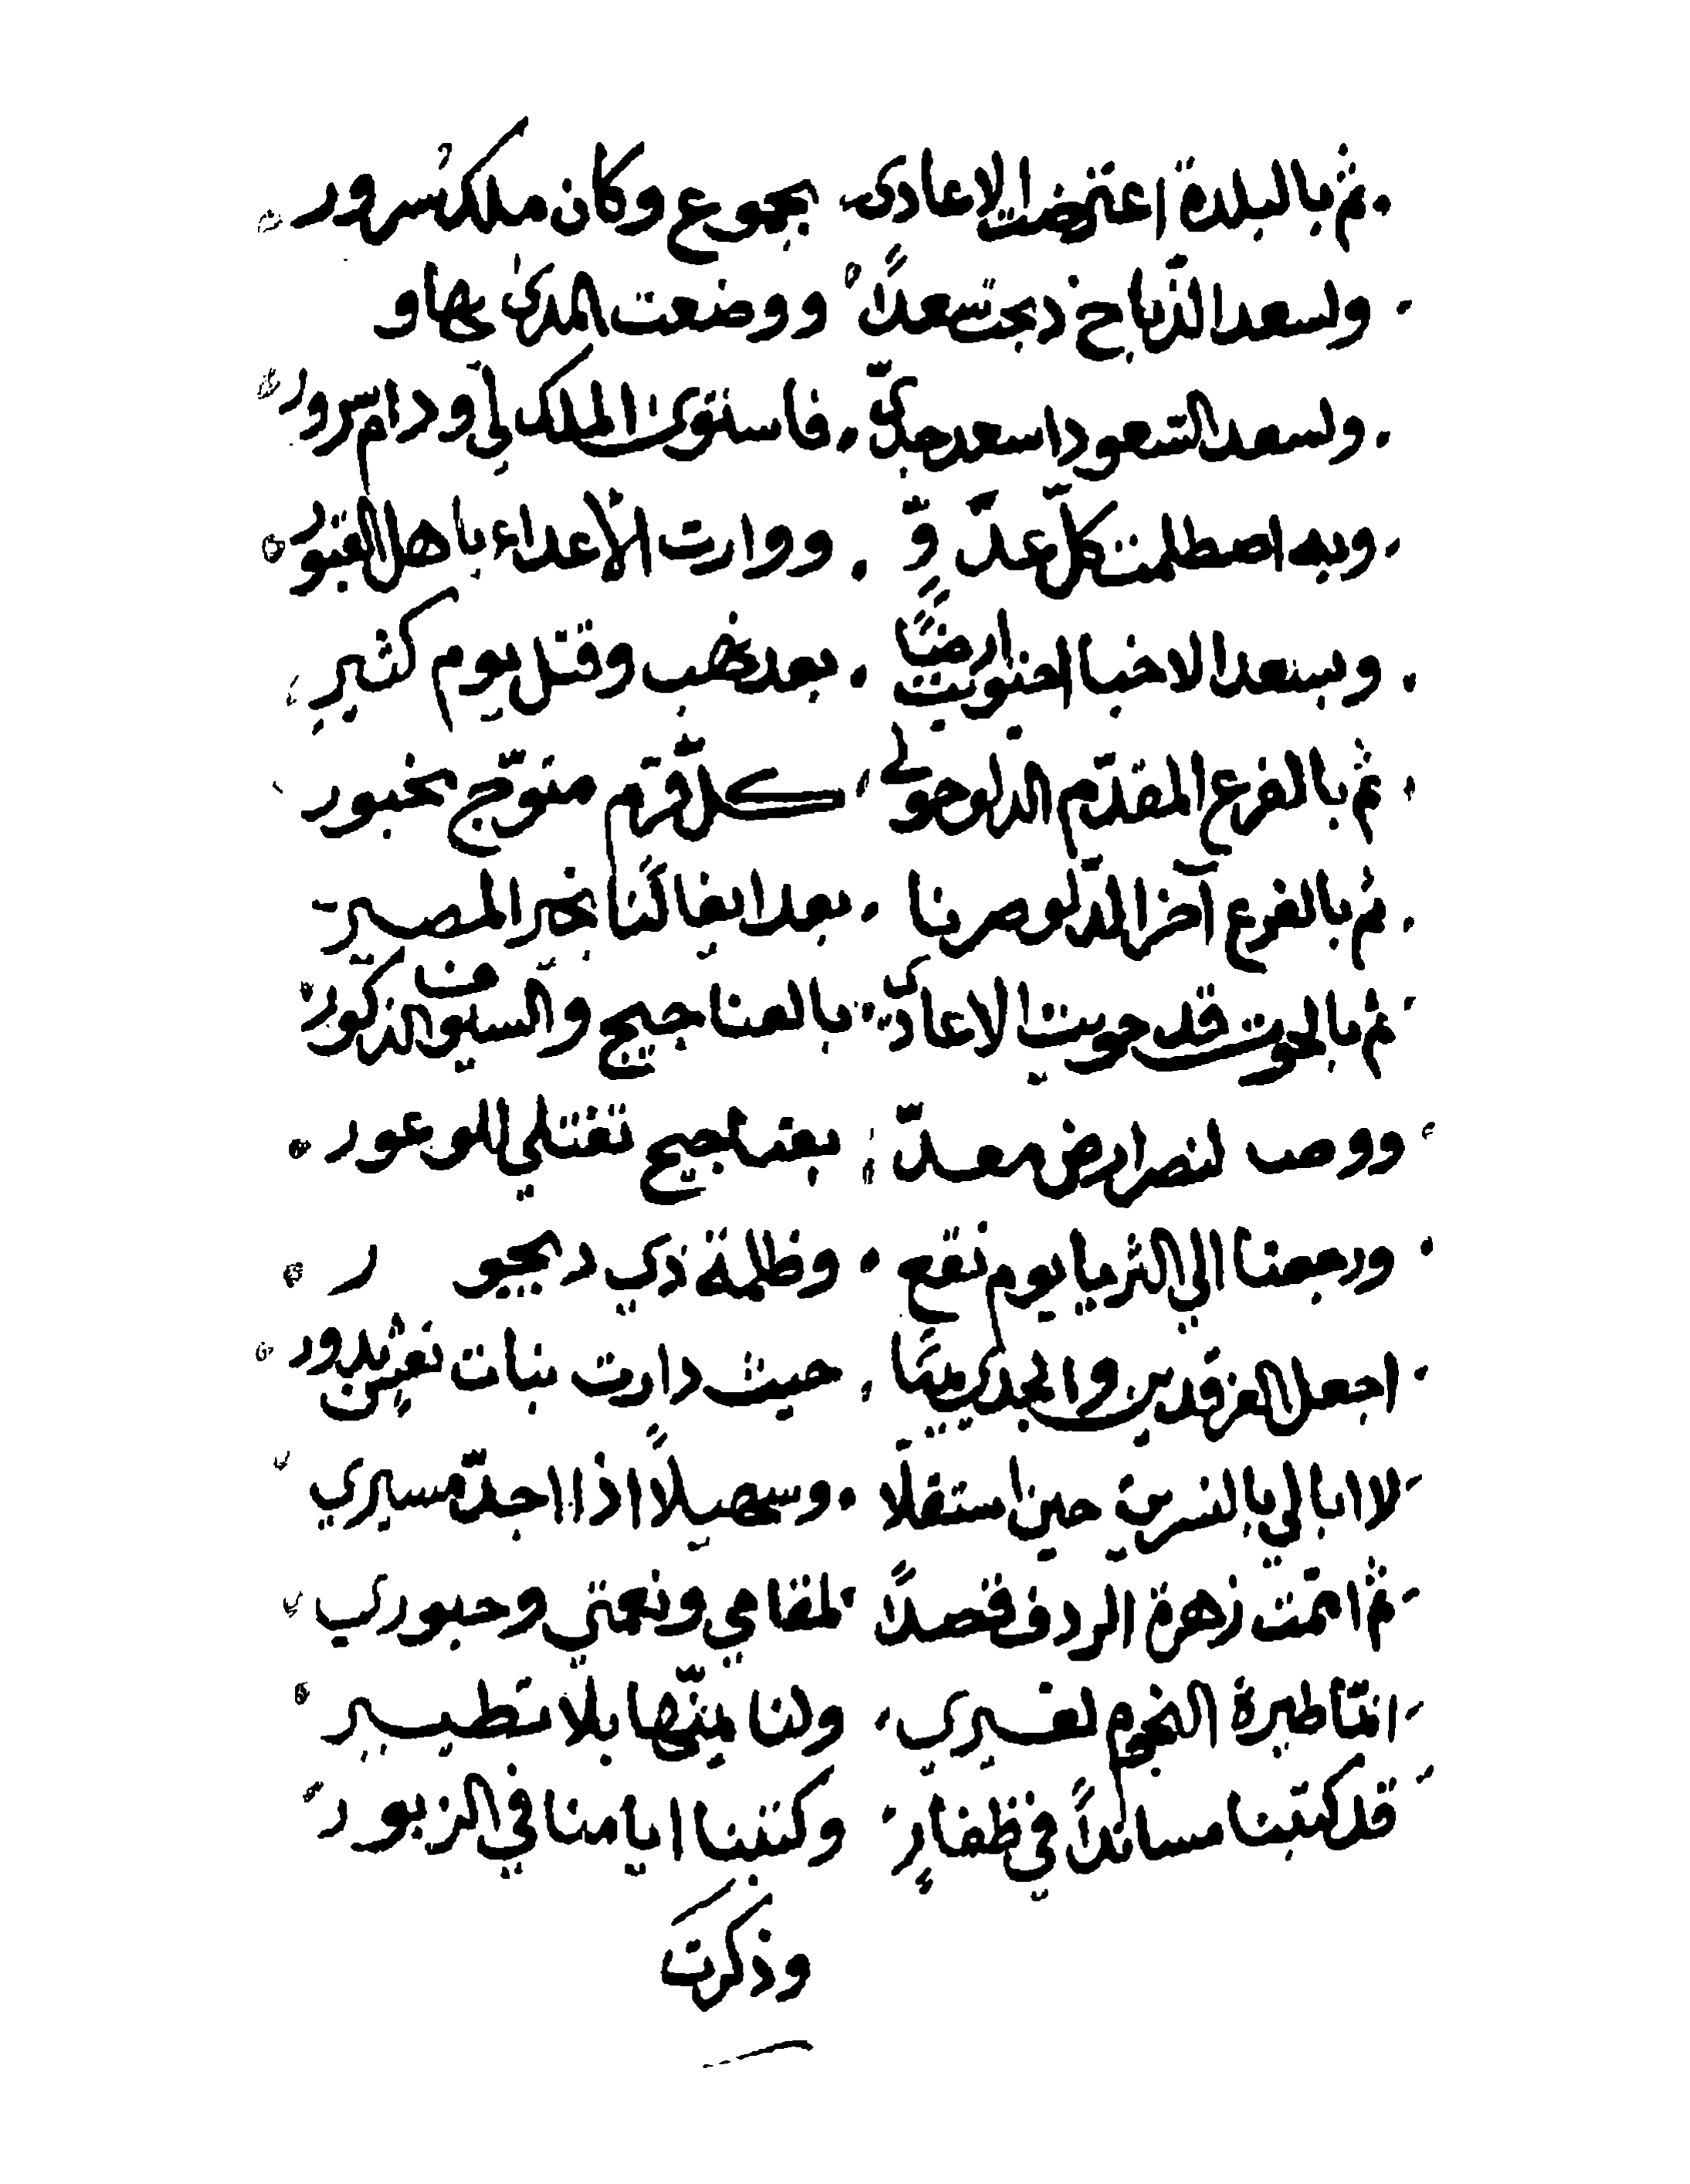 ثم بالبلدة اعترضت الاعادى بجموع وكان ملك سرور
ولسعد الذباح ذبحت سعدًا ووضعت المدى بها و
ولسعد السعود اسعد جدّي فاستوى الملك لي ودام سرور
وبه اصطلمت كلّ عدوّ ووارت الأعداء باهل القبور
وبسعد الاخبا احتويت ارضًا بعد نهب وقتل يوم كثير
ثم بالفرع المقدّم الدلو حولى كل قرم متوّج بحبور
ثم بالفرع آخر الدّلو صرنا بعد ايفالنا بخير المصير
ثم بالحوت قد حويت الاعادي بالعناجيج والسيوف الذكور
ووصـ لنصر ارض معدّ بعناجيج تغتلي للوعور
ورجعنا الي الثريا يوم نقع وظلمة ذي ديجو ر
اجعل الفرقدين والجدي يمينًا حيث دارت بنات نعش ندور
لا ابالي بالنسرين حين استقلّا وسهيلاً اذا اجدّ مسيري
ثم اتمت زهرة الردف قصدًا لمقامي ونعمتي وحبوري
انمّا طيرة النجوم لغيري ولنا يمنّها بلا تطيير
قد كتبنا مساندًا في ظفارٍ وكتبنا ايامنا في الزبور
وذكرت